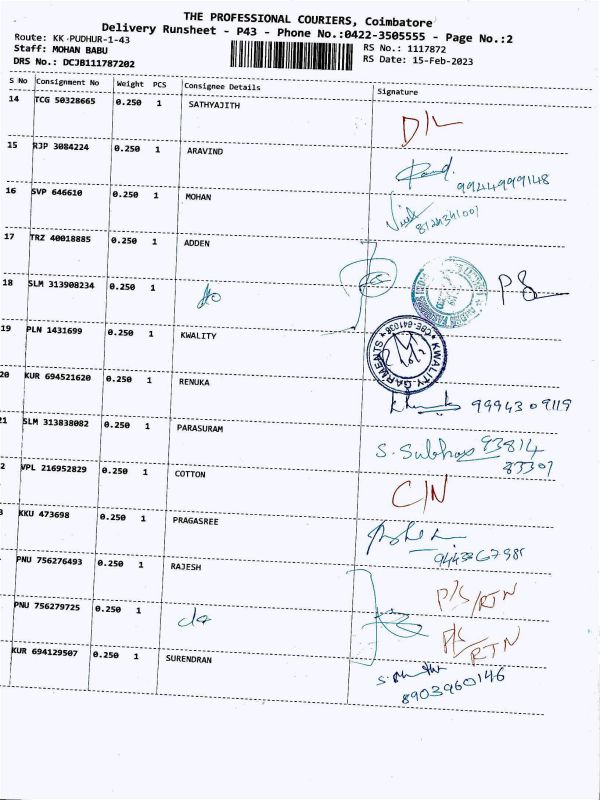 THE PROFESSIONAL COURIERS, Coimbatore
Delivery Runsheet - P43 - Phone No.:0422-3505555 - Page No.:2
Route: KK-PUDHUR-1-43
RS No.: 1117872
Staff: MOHAN BABU
RS Date: 15-Feb-2023
DRS No.: DCJB111787202
S No Consignment No Weight PCS Consignee Details Signature
14 TCG 50328665 0.250 1 SATHYAJITH D/L
15 RJP 3084224 0.250 1 ARAVIND
9944999148
16 SVP 646610 0.250 1 MOHAN
8124341001
17 TRZ 40018885 0.250 1 ADDEN
18 SLM 313908234 0.250 1 do
19 PLN 1431699 0.250 1 KWALITY
KWALITY GARMENTS * CBE-641038 *
20 KUR 694521620 0.250 1 RENUKA
9994309119
21 SLM 313838082 0.250 1 PARASURAM S. Subhas 93814
83301
2 VPL 216952829 0.250 1 COTTON C/N
3 KKU 473698 0.250 1 PRAGASREE
PNU 756276493 0.250 1 RAJESH P/S/RTN
PNU 756279725 0.250 1 do P/S/RTN
KUR 694129507 0.250 1 SURENDRAN
8903960146